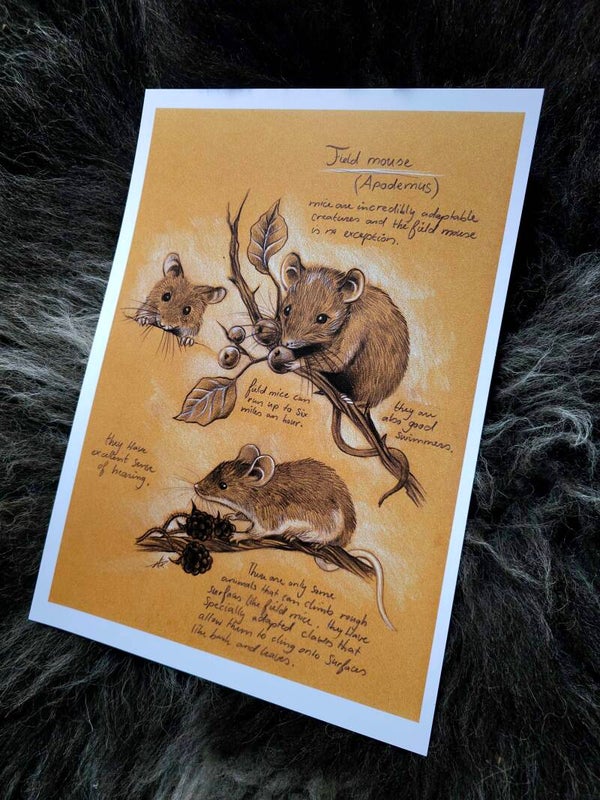 Field mouse
(Apodemus)
mice are incredibly adaptable
creatures and the field mouse
is no exception.
field mice can
run up to six
miles an hour.
they are
also good
swimmers.
they have
excelent sense
of hearing.
There are only some
animals that can climb rough
surfaces like field mice. they have
specially adapted claws that
allow them to cling onto surfaces
like bark and leaves.